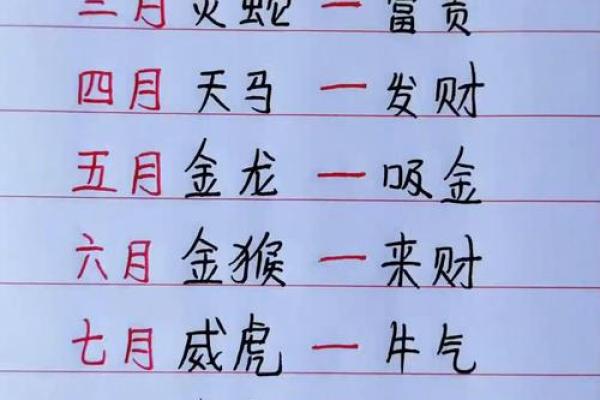 三月 灵蛇 一 富贵
四月 天马 一 发财
五月 金龙 一 吸金
六月 金猴 一 来财
七月 威虎 一 牛气